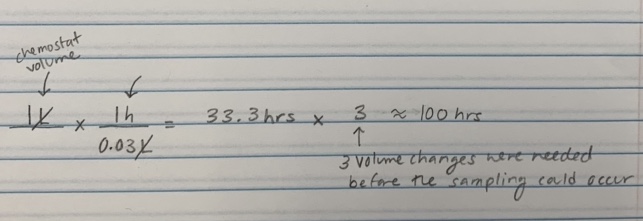 chemostat
volume
1L × 1h / 0.03L = 33.3 hrs × 3 ≈ 100 hrs
3 volume changes were needed
before the sampling could occur